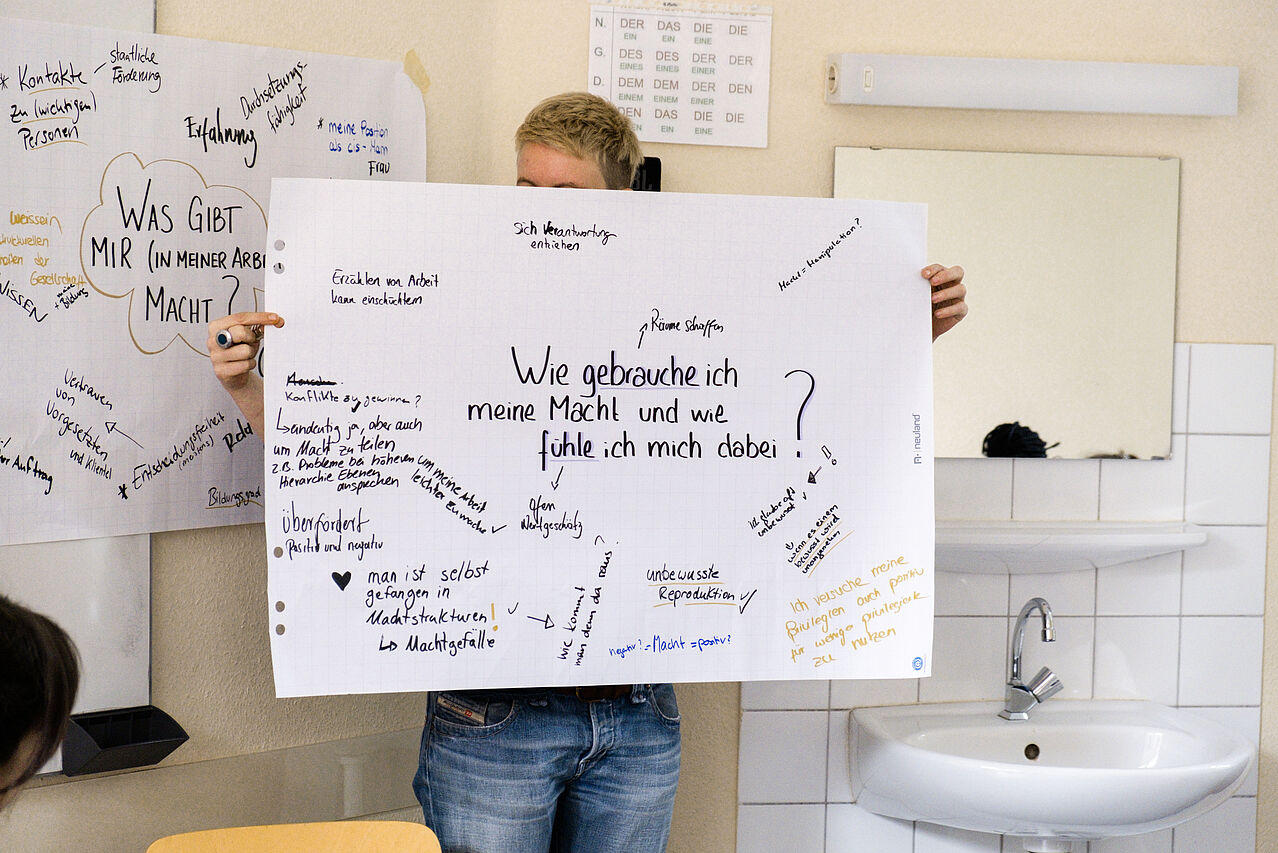 * Kontakte
zu (wichtigen)
Personen
staatliche
Förderung
Erfahrung
Durchsetzungs-
fähigkeit
* meine Position
als cis-Mann
Frau
WAS GIBT
MIR (IN MEINER ARBE
MACHT ?
weissein
strukturellen
der
Gesellschaft
WISSEN
+ meine
Bildung
Vertrauen
von
Vorgesetzten
und Klientel
* Entscheidungsfreiheit
Geld
Auftrag
Bildungsgrad
N. DER DAS DIE DIE
EIN EIN EINE
G. DES DES DER DER
EINES EINES EINER
D. DEM DEM DER DEN
EINEM EINEM EINER
DEN DAS DIE DIE
EIN EINE
Sich Verantwortung
entziehen
Macht = Manipulation?
Erzählen von Arbeit
kann einschüchtern
Räume schaffen
Wie gebrauche ich
meine Macht und wie
fühle ich mich dabei ?
Konflikte zu gewinnen?
↳ eindeutig ja, aber auch
um Macht zu teilen
z.B. Probleme bei höheren
Hierarchie Ebenen
ansprechen
um meine Arbeit
leichter zu machen ✓
offen
Wertgeschätz
überfordert
Positiv und negativ
♥ man ist selbst
gefangen in
Machtstrukturen! ✓
↳ Machtgefälle
wie kommt
man denn da raus?
unbewusste
Reproduktion ✓
negativ? = Macht = positiv?
!
ich glaube oft
unbewusst ✓
wenn es einem
bewusst wird
unangenehm
Ich versuche meine
Privilegien auch positiv
für weniger privilegierte
zu nutzen
neuland